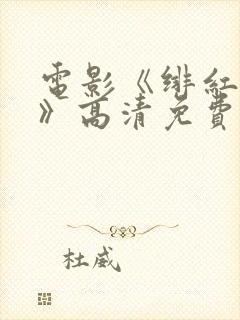 電影《緋紅
》高清免費
杜威